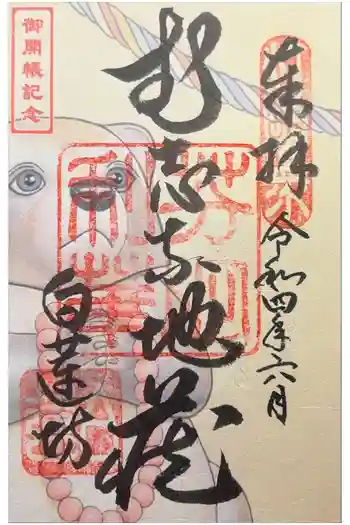 奉拝 令和四年六月
む志な地蔵
御開帳記念
白蓮坊